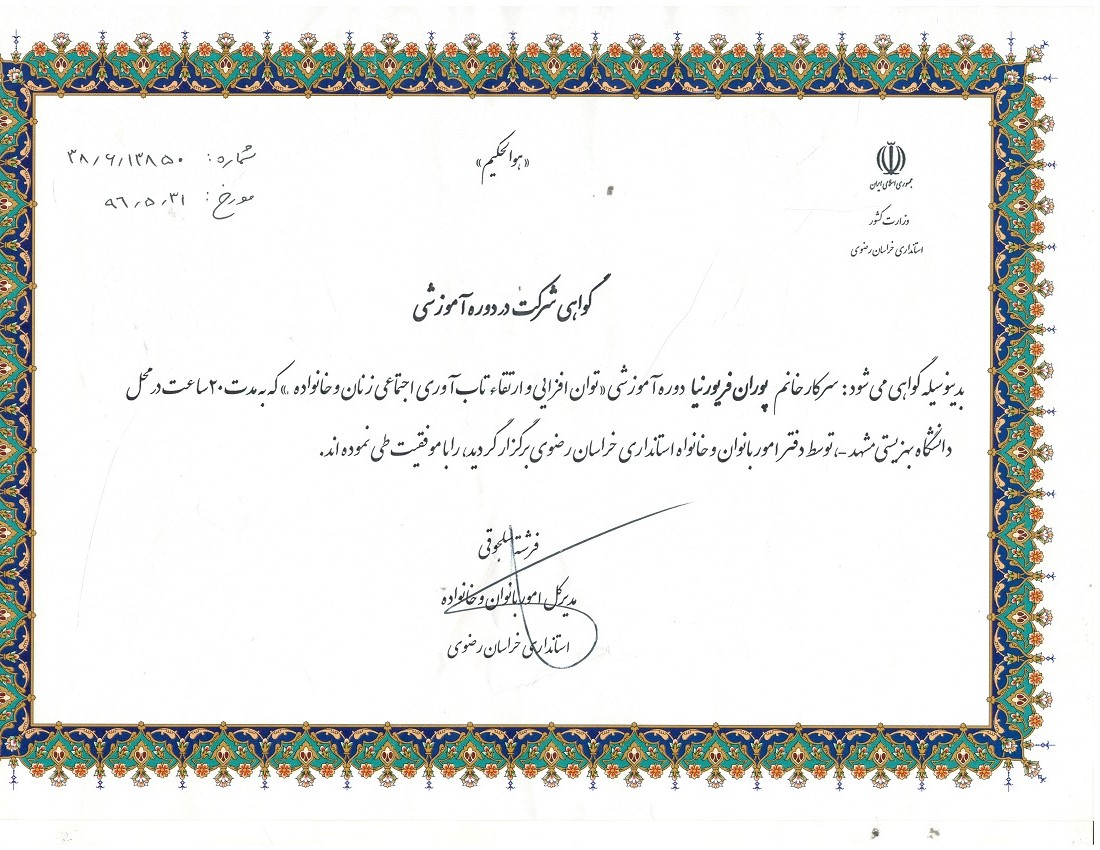 «هوالحکیم»
جمهوری اسلامی ایران
وزارت کشور
استانداری خراسان رضوی
شماره: ۳۸٫۶٫۱۳۸۵۰
مورخ: ۹۶٫۵٫۳۱
گواهی شرکت در دوره آموزشی
بدینوسیله گواهی می شود: سرکار خانم پوران فریورنیا دوره آموزشی «توان افزایی و ارتقاء تاب آوری اجتماعی زنان و خانواده،» که به مدت ۲۰ ساعت در محل
دانشگاه بهزیستی مشهد –، توسط دفتر امور بانوان و خانواه استانداری خراسان رضوی برگزار گردید، را با موفقیت طی نموده اند.
فرشته سلجوقی
مدیرکل امور بانوان و خانواده
استانداری خراسان رضوی